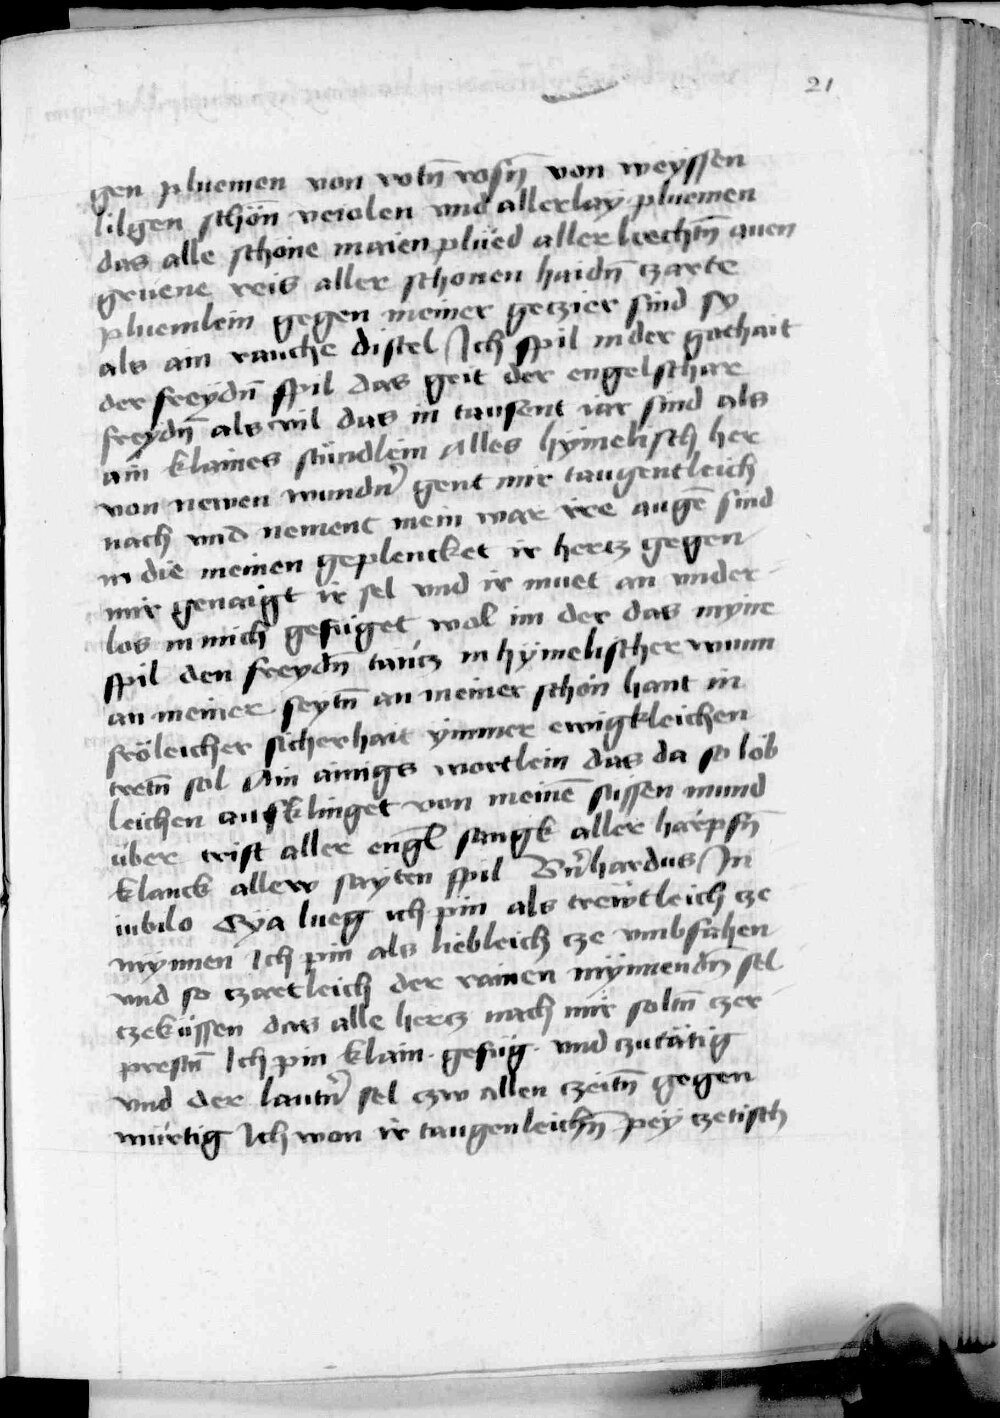 21
gen pluemen von rotn̄ rosn̄ von weyssen
lilgen schön veiolen vnd allerlay pluemen
das alle schöne maien plüed aller liechtn̄ auen
gruene reis aller schonen haidn̄ czarte
pluemlein gegen meiner geczier sind so
als ain rauche distel Ich spil in der gothait
der freydn̄ spil das geit der engelschar
freydn̄ als vil das in tausent iar sind als
ain klaines stündlein Alles hymelisch her
von newen wundn̄ gent mir taugentleich
nach vnd nement mein war ire augē sind
in die meinen geplencket ir hertz gegen
mir genaigt ir sel vnd ir muet an vnder
los in mich gefüget wol im der das mÿne
spil den freydn̄ tancz in hÿmelischer wunn
an meiner seytn̄ an meiner schön hant in
fröleicher sicherhait ymmer ewigkleichen
tretn̄ sol Ain ainigs wortlein das da so löb
leichen ausklinget von meinē süssen mund
über trift aller engl sangk aller harpfn̄
klanck allerr sayten spil Bn̄hardus In
iubilo Eya lueg ich pin als trewtleich cze
mynnen Ich pin als liebleich cze vmbfahen
vnd so czartleich der rainen mÿnnendn̄ sel
czeküssen das alle hertz nach mir soltn̄ czer
prestn̄ Ich pin klain gefüg vnd czutätig
vnd der lautn̄ sel czw allen czeitn̄ gegen
würtig Ich won ir taugenleichn̄ pey czetisch